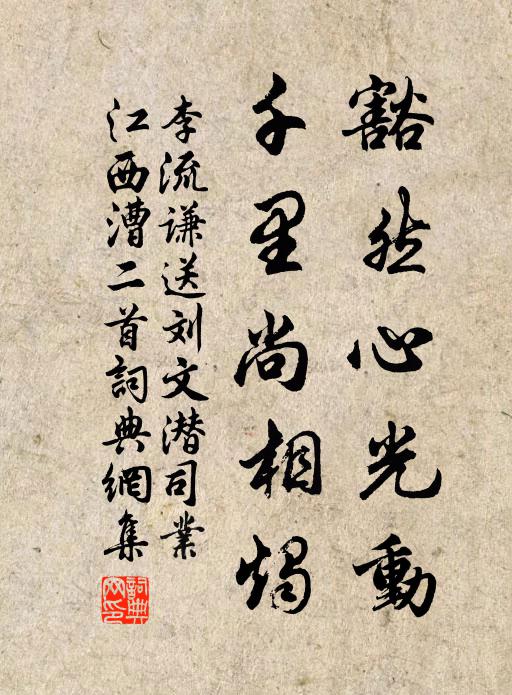 豁然心光動
千里尚相燭
李流谦送刘文潜司業
江西漕二首詞典網集
詞典
网印